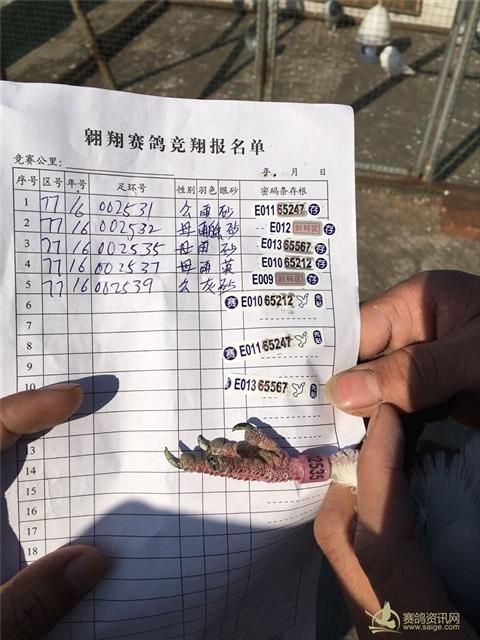 翱翔赛鸽竞翔报名单
竞赛公里： 年 月 日
序号 区号 年号 足环号 性别 羽色 眼砂 密码条存根
1 77 16 002531 公 雨 砂 E011 65247 存
2 77 16 002532 母 砂 E012 刮码区 存
3 77 16 002535 母 雨 砂 E013 65567 存
4 77 16 002537 母 雨 黄 E010 65212 存
5 77 16 002539 公 灰 砂 E009 刮码区 存
6 赛 E010 65212
7
8 赛 E011 65247
9
10 E013 65567
13
14
15
16
17
18
2535
赛鸽资讯网
www.saige.com